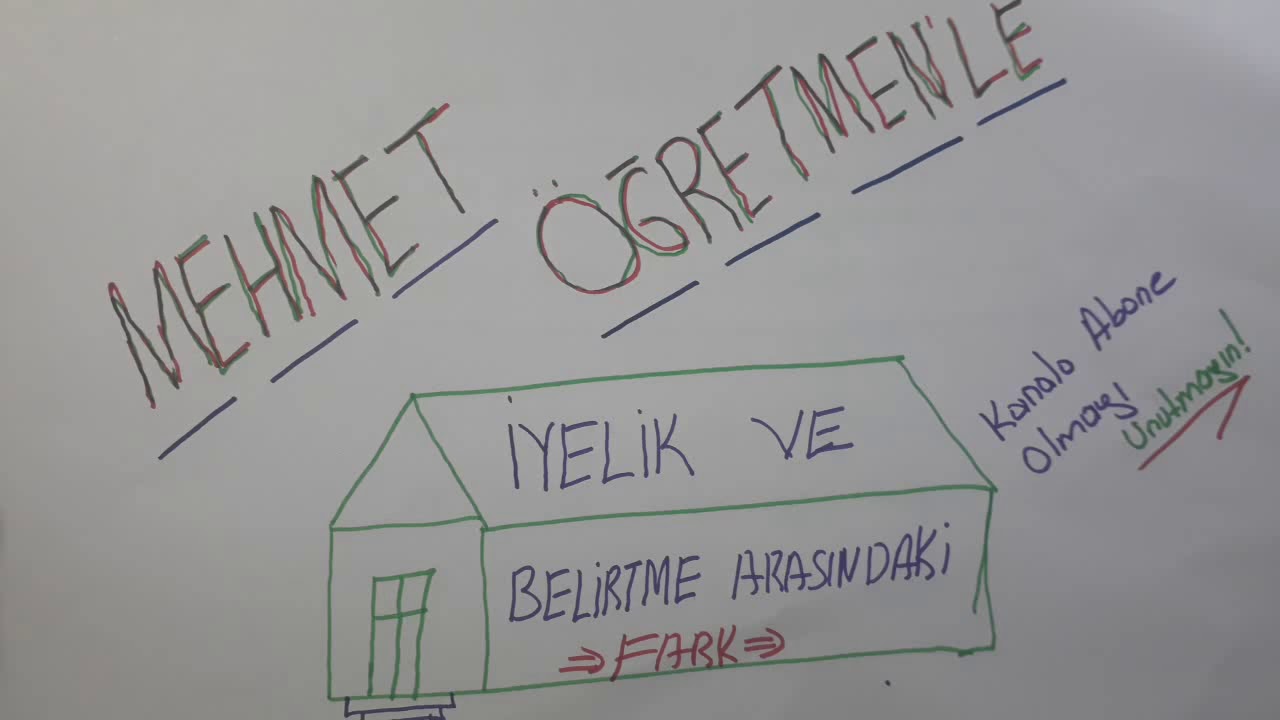 MEHMET ÖĞRETMEN'LE
İYELİK VE
BELİRTME ARASINDAKİ
⇒ FARK ⇒
Kanala Abone
Olmayı
Unutmayın!